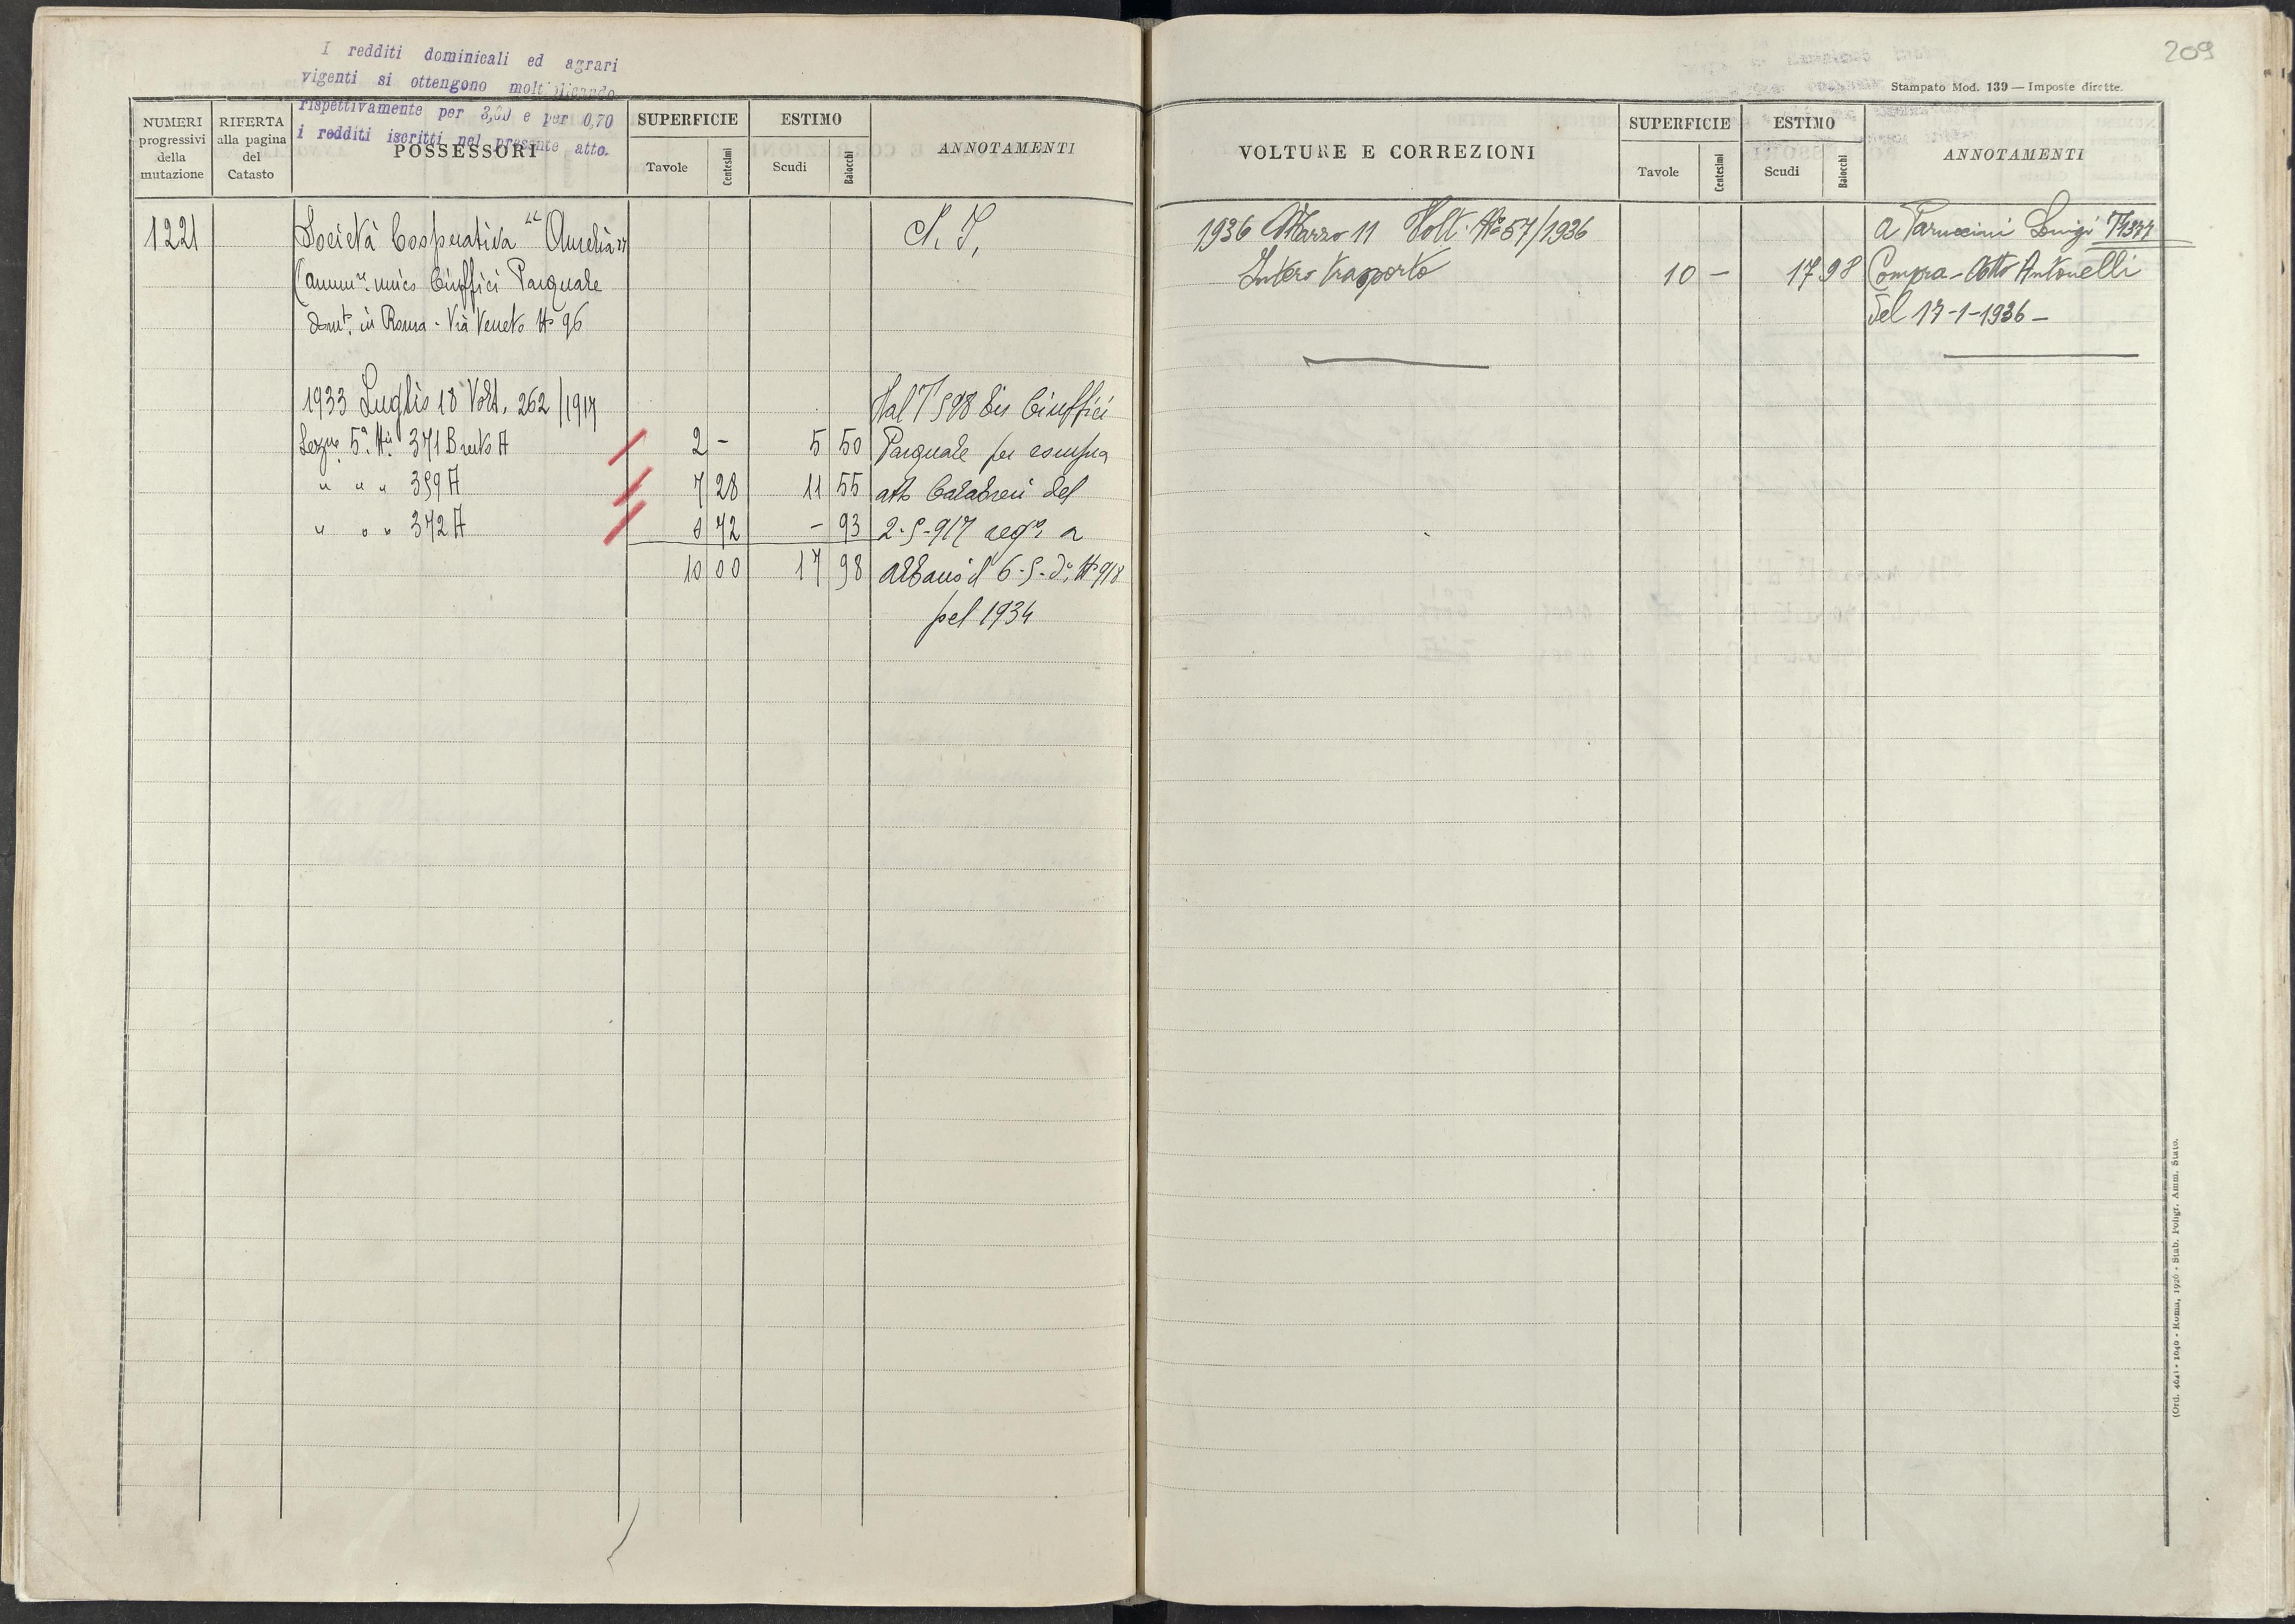 I redditi dominicali ed agrari
vigenti si ottengono moltiplicando
rispettivamente per 3,60 e per 0,70
i redditi iscritti nel presente atto.
NUMERI progressivi della mutazione
RIFERTA alla pagina del Catasto
POSSESSORI
SUPERFICIE
Tavole Centesimi
ESTIMO
Scudi Baiocchi
ANNOTAMENTI
1221 Società Cooperativa "Aurelia" N. I.
(amm.re unico Ciuffici Pasquale
dom.to in Roma - Via Veneto N° 96
1933 Luglio 18 Volt. 262/1917 Dal T 598 bis Ciuffici
Sezne 5a Ni 371 Bruto A 2 - 5 50 Pasquale per compra
" " " 359 A 7 28 11 55 atto Calabresi del
" " " 372 A 0 72 - 93 2-5-917 a
10 00 17 98 Albano il 6-5-do N° 918
pel 1934
209
Stampato Mod. 139 — Imposte dirette.
VOLTURE E CORREZIONI
SUPERFICIE
Tavole Centesimi
ESTIMO
Scudi Baiocchi
ANNOTAMENTI
1936 Marzo 11 Volt. No 57/1936 a Paruccini Luigi T 1377
Intero trasporto 10 - 17 98 Compra - Atto Antonelli
del 17-1-1936 -
(Ord. 4641 - 1040 - Roma, 1926 - Stab. Poligr. Amm. Stato.